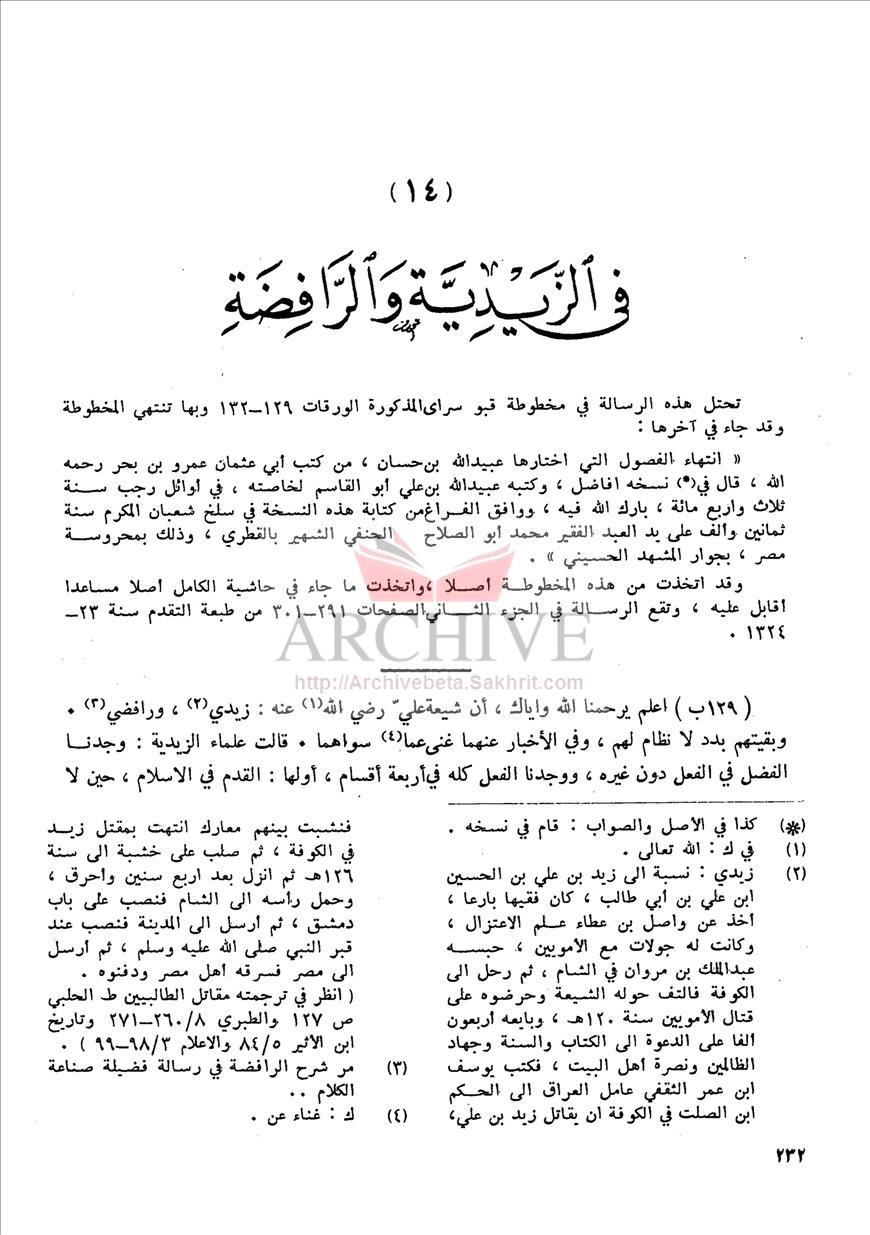 (١٤)
فى الزَّيْدِيَّة وَالرَّافِضَةِ
تحتل هذه الرسالة في مخطوطة قبو سراى المذكورة الورقات ١٢٩–١٣٢ وبها تنتهي المخطوطة
وقد جاء في آخرها :
« انتهاء الفصول التي اختارها عبيدالله بن حسان ، من كتب أبي عثمان عمرو بن بحر رحمه
الله ، قال في(*) نسخه افاضل ، وكتبه عبيدالله بن علي أبو القاسم لخاصته ، في أوائل رجب سنة
ثلاث واربع مائة ، بارك الله فيه ، ووافق الفراغ من كتابة هذه النسخة في سلخ شعبان المكرم سنة
ثمانين وألف على يد العبد الفقير محمد أبو الصلاح الحنفي الشهير بالقطري ، وذلك بمحروسة
مصر ، بجوار المشهد الحسيني » .
وقد اتخذت من هذه المخطوطة أصلا ، واتخذت ما جاء في حاشية الكامل أصلا مساعدا
أقابل عليه ، وتقع الرسالة في الجزء الثاني الصفحات ٢٩١–٣٠١ من طبعة التقدم سنة ٢٣–
١٣٢٤ .
ARCHIVE
http://Archivebeta.Sakhrit.com
( ١٢٩ب ) اعلم يرحمنا الله واياك ، أن شيعة عليّ رضي الله(١) عنه : زيدي(٢) ، ورافضي(٣) .
وبقيتهم بدد لا نظام لهم ، وفي الأخبار عنهما غنى عما(٤) سواهما . قالت علماء الزيدية : وجدنا
الفضل في الفعل دون غيره ، ووجدنا الفعل كله في أربعة أقسام ، أولها : القدم في الاسلام ، حين لا
(*) كذا في الأصل والصواب : قام في نسخه .
(١) في ك : الله تعالى .
(٢) زيدي : نسبة الى زيد بن علي بن الحسين
ابن علي بن أبي طالب ، كان فقيها بارعا ،
أخذ عن واصل بن عطاء علم الاعتزال ،
وكانت له جولات مع الأمويين ، حبسه
عبدالملك بن مروان في الشام ، ثم رحل الى
الكوفة فالتف حوله الشيعة وحرضوه على
قتال الأمويين سنة ١٢٠هـ ، وبايعه أربعون
الفا على الدعوة الى الكتاب والسنة وجهاد
الظالمين ونصرة أهل البيت ، فكتب يوسف
ابن عمر الثقفي عامل العراق الى الحكم
ابن الصلت في الكوفة ان يقاتل زيد بن علي،
فنشبت بينهم معارك انتهت بمقتل زيد
في الكوفة ، ثم صلب على خشبة الى سنة
١٢٦هـ ثم انزل بعد اربع سنين وأحرق ،
وحمل رأسه الى الشام فنصب على باب
دمشق ، ثم أرسل الى المدينة فنصب عند
قبر النبي صلى الله عليه وسلم ، ثم أرسل
الى مصر فسرقه أهل مصر ودفنوه .
( انظر في ترجمته مقاتل الطالبيين ط الحلبي
ص ١٢٧ والطبري ٨/٢٦٠–٢٧١ وتاريخ
ابن الأثير ٥/٨٤ والاعلام ٣/٩٨–٩٩ ) .
(٣) مر شرح الرافضة في رسالة فضيلة صناعة
الكلام ..
(٤) ك : غناء عن .
٢٣٢